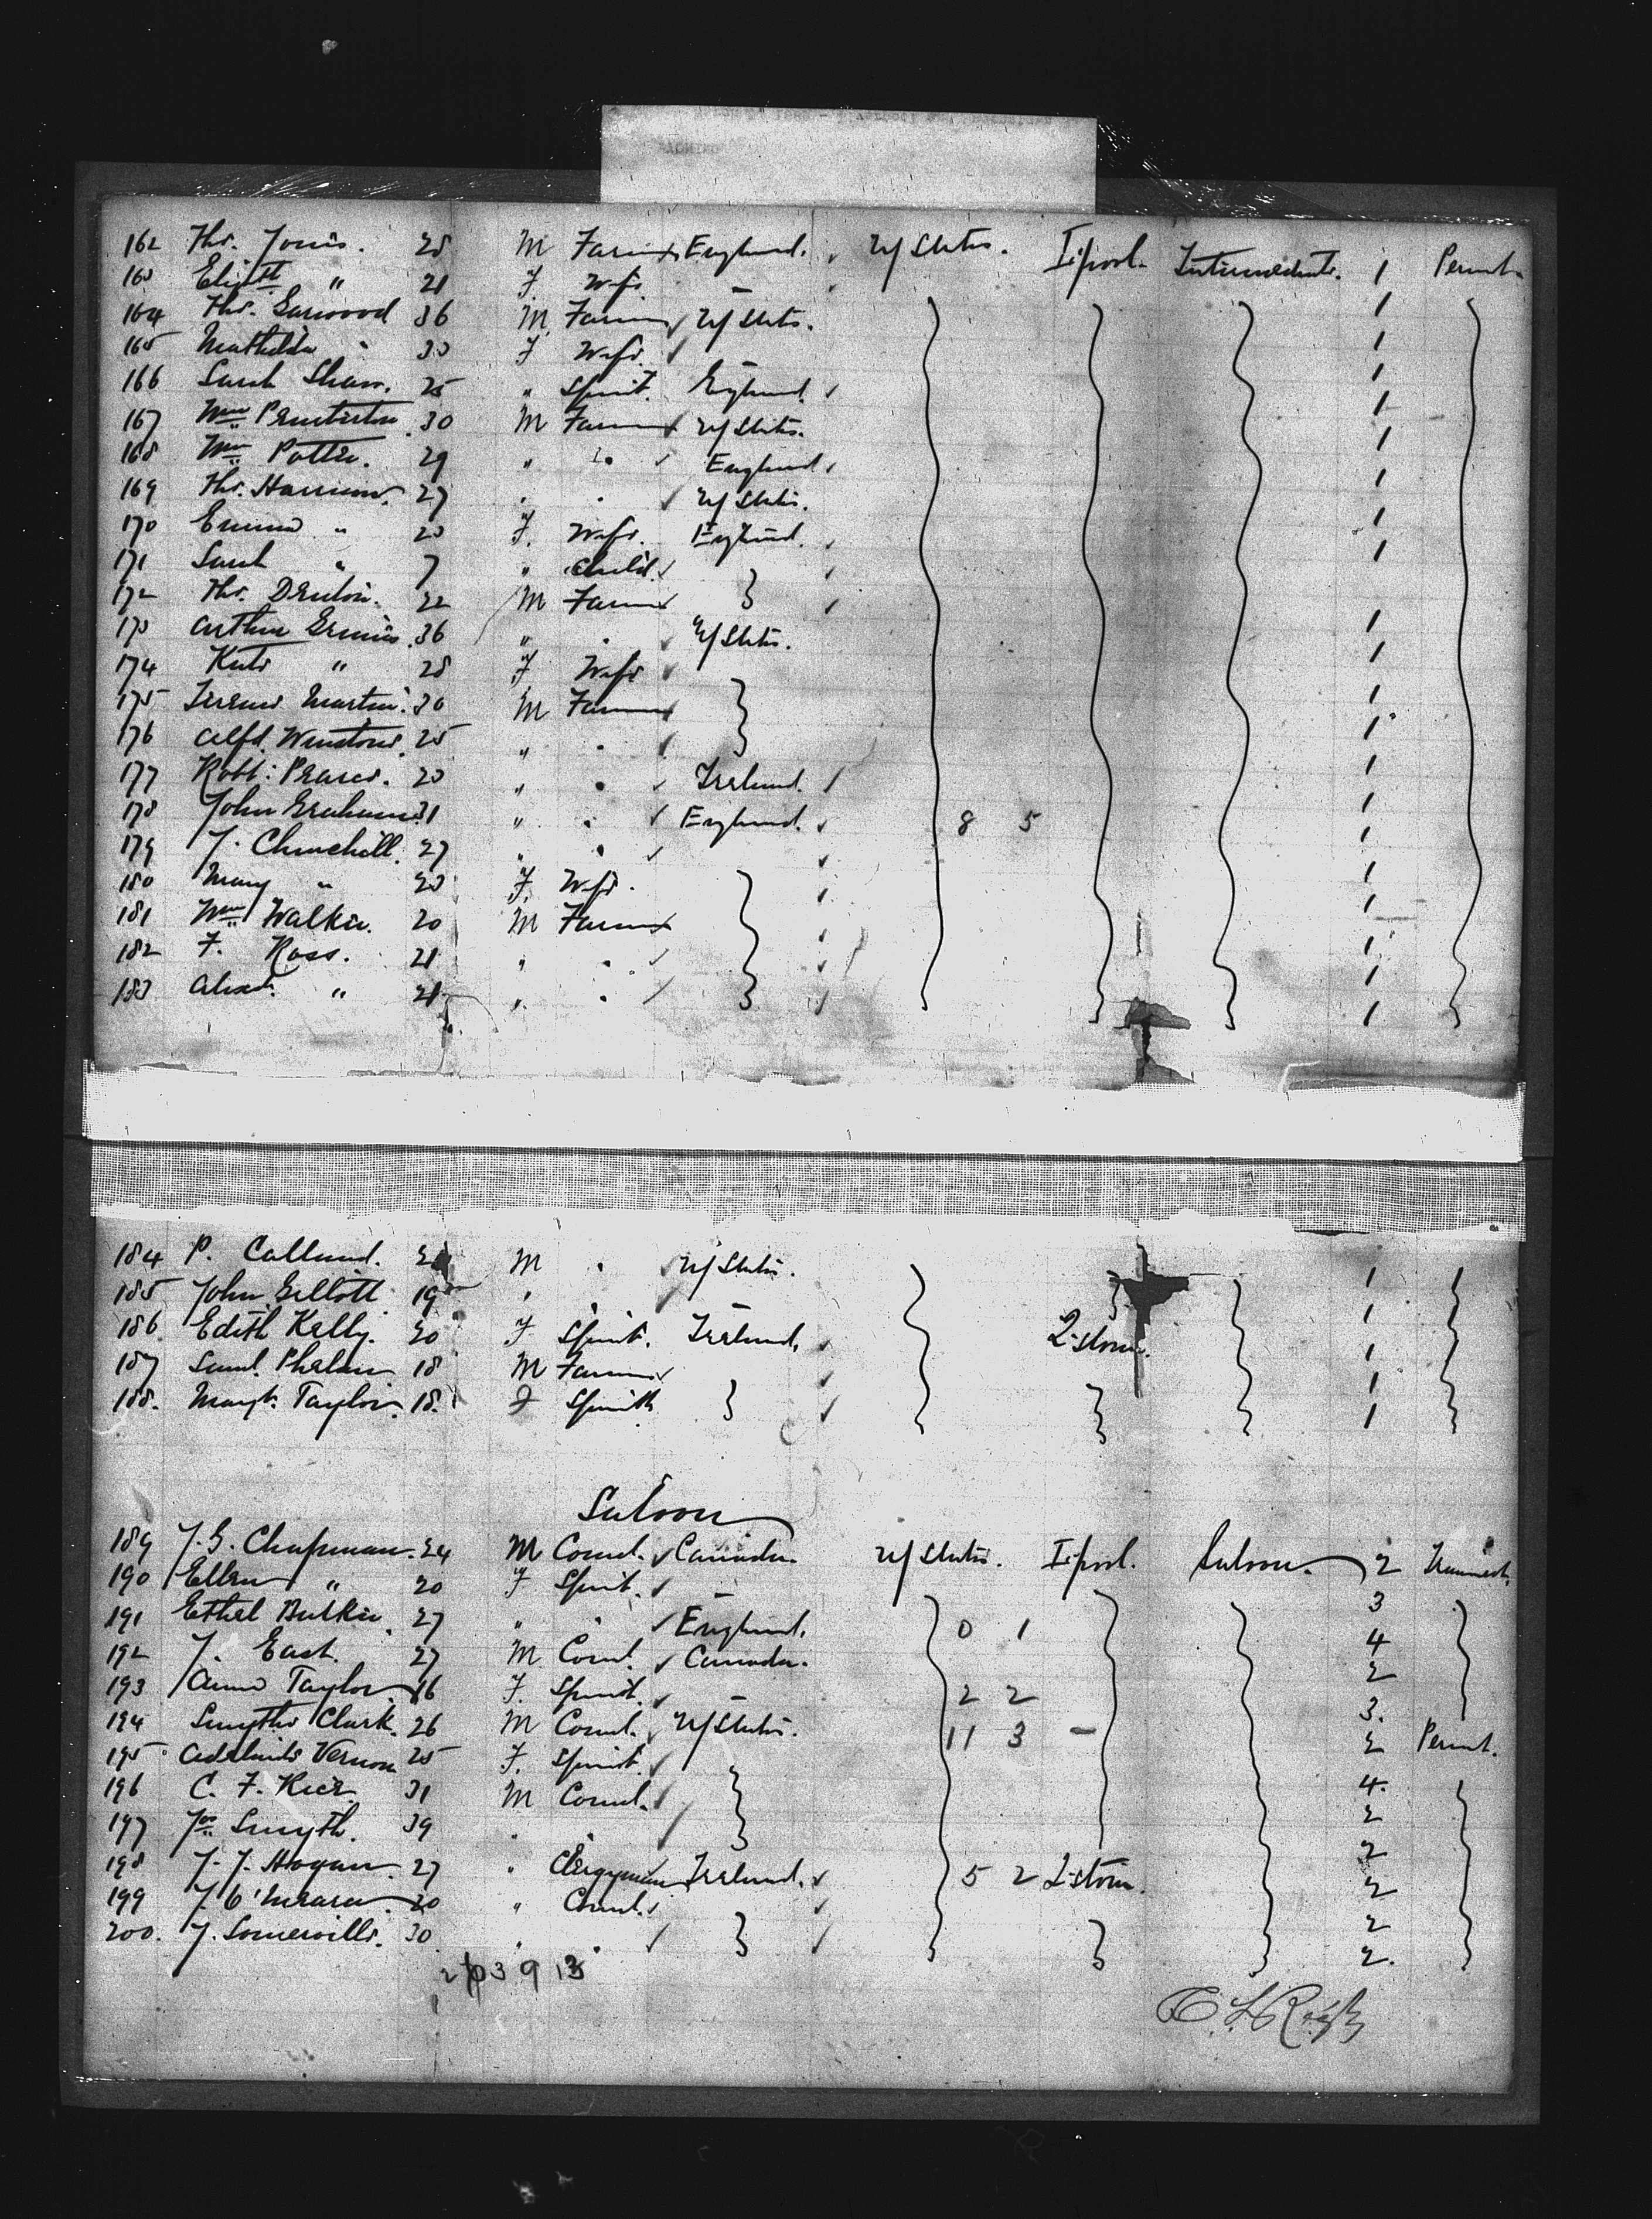 162 Ths. Jones. 28 M Farmer England. U/States. L'pool. Intermediate. 1 Permt.
163 Elizth " 21 F. Wife — 1
164 Ths. Garwood 36 M. Farmer U/States. 1
165 Mathilda " 33 F Wife 1
166 Sarah Shaw. 25 " Spinst. England. 1
167 Wm Pemberton 30 M Farmer U/States. 1
168 Wm Potter. 29 " " England 1
169 Ths. Harrison. 27 " " U/States. 1
170 Emma " 23 F. Wife. England. 1
171 Sarah " 7 " Child.
172 Ths. Denton. 22 M Farmer
173 Arthur 36 " " U/States. 1
174 Kate " 28 F Wife 1
175 Martin. 30 M Farmer 1
176 Alfd. Winstone. 25 " " 1
177 Robt: Pearce. 23 " " Ireland. 1
178 John Graham 31 " " England. 8 5 1
179 J. Churchill. 27 " " 1
180 Mary " 23 F. Wife. 1
181 Wm Walker. 20 M Farmer 1
182 F. Ross. 21 " " 1
183 Alexdr. " 21 " " 1
184 P. Callund. M " U/States. 1
185 John Gillott 19 " " — 1
186 Edith Kelly. 20 F Spinst. Ireland. Q'stown. 1
187 Saml. Phelan 18 M Farmer 1
188. Margt. Taylor. 18. F Spinstr 1
Saloon
189 J. G. Chapman. 24 M Coml. Canada. U/States. L'pool. Saloon. 2
190 Ellen " 20 F Spinst. — 3
191 Ethel Butler. 27 " " England. 0 1 4
192 J. East. 27 M Coml. Canada. 2
193 Anna Taylor 16 F. Spinst. — 2 2 3.
194 Smythe Clark. 26 M Coml. U/States. 11 3 — 2 Permt.
195 Adelaide Vernon 25 F. Spinst. 4.
196 C. F. Kier 31 M Coml. 2
197 Jas Smyth. 39 " " 2
198 J. J. Hogan. 27 " Clergyman Ireland. 5 2 Q'stown. 2
199 J. O'Meara 20 " Coml. 2
200. J. Somerville. 30 " " 2.